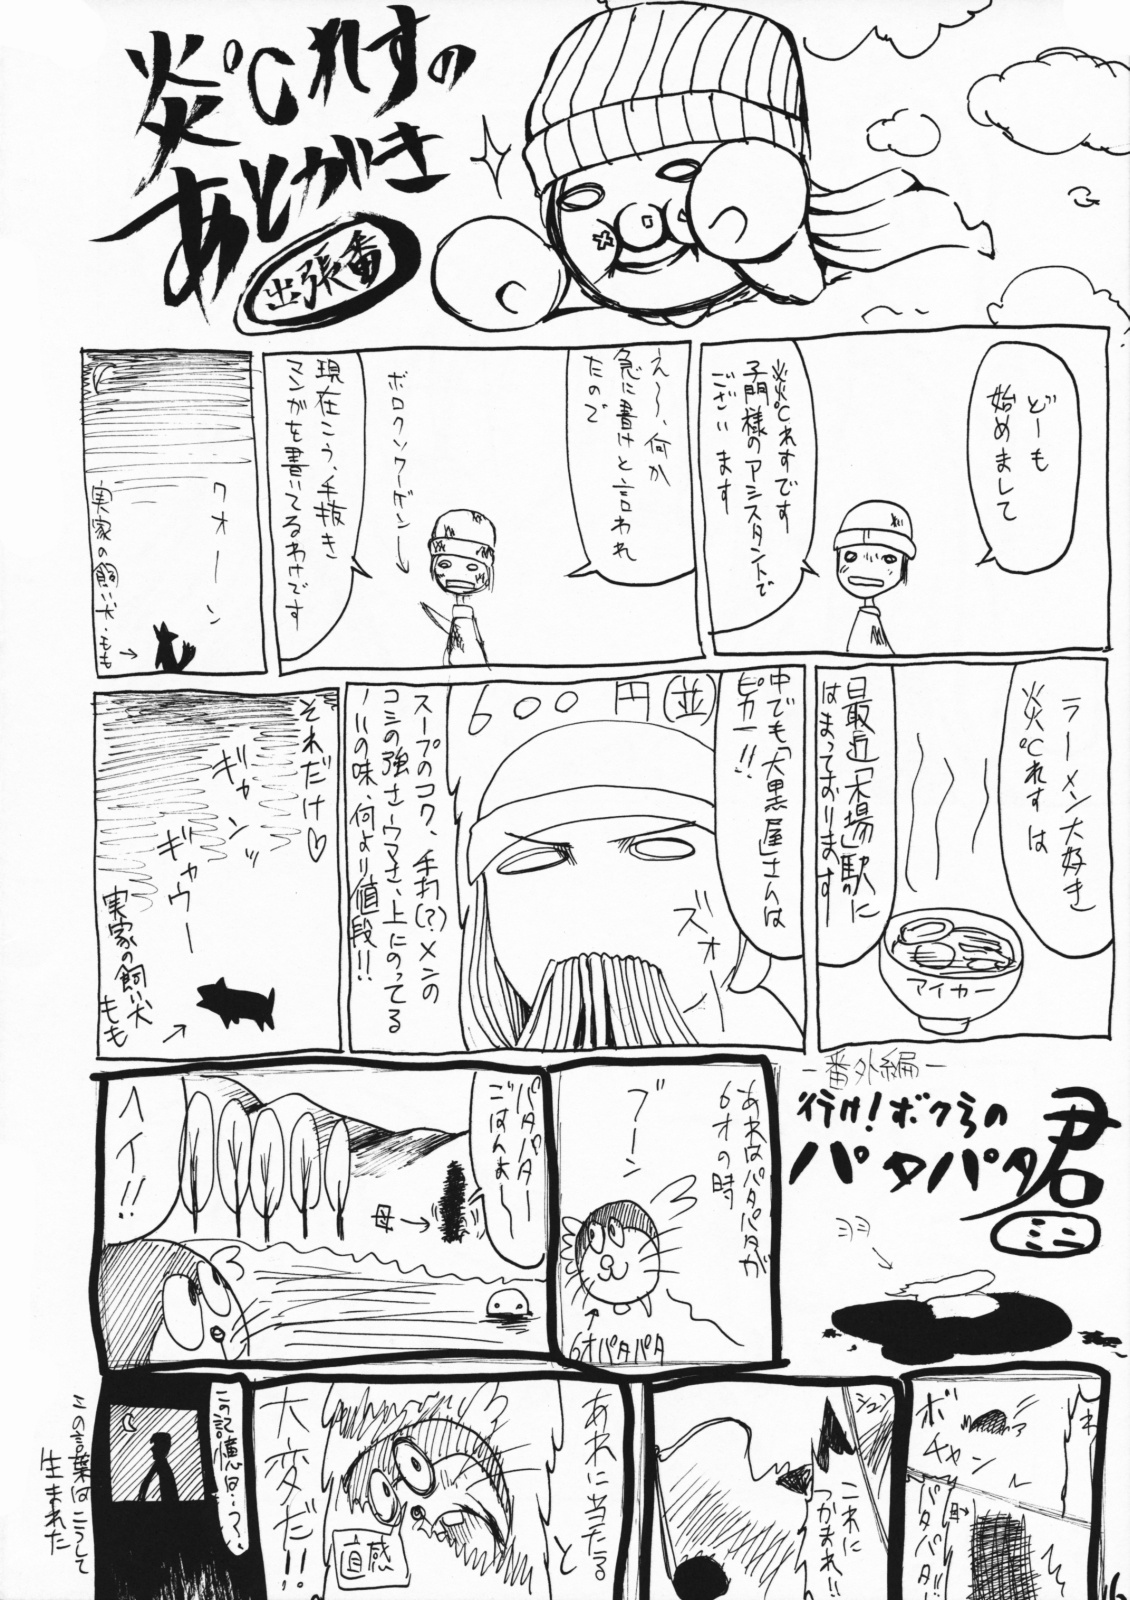 炎℃れすの
あとがき
出張番
どーも
始めまして
炎℃れすです
子門様のアシスタントで
ございます
え〜、何か
急に書けと言われ
たので
ボロクソワーゲン
現在こう、手抜き
マンガを書いてるわけです
ワオーン
実家の飼い犬・もも
ラーメン大好き
炎℃れすは
最近「大場」駅に
はまっております
アイカー
中でも「大黒屋」さんは
ピカ一!!
600円(並)
ズオーーッ
スープのコク、手打(?)メンの
コシの強さ・ウマさ、上にのってる
ノリの味、何より値段!!
それだけ♡
ギャンッ
ギャウー
実家の飼い犬
もも
-番外編-
行け!ボクらの
パタパタ君
ミニ
ヨミ
あれはパタパタが
6才の時
ブーン
6才パタパタ
パタパター
ごはんよ〜
母
ヘイ!!
ボチャン
パタパタ!!
母
シュッ
これに
つかまれ!!
あれに当たると
大変だ!!
直感
この記憶は・・?
この言葉はこうして
生まれた